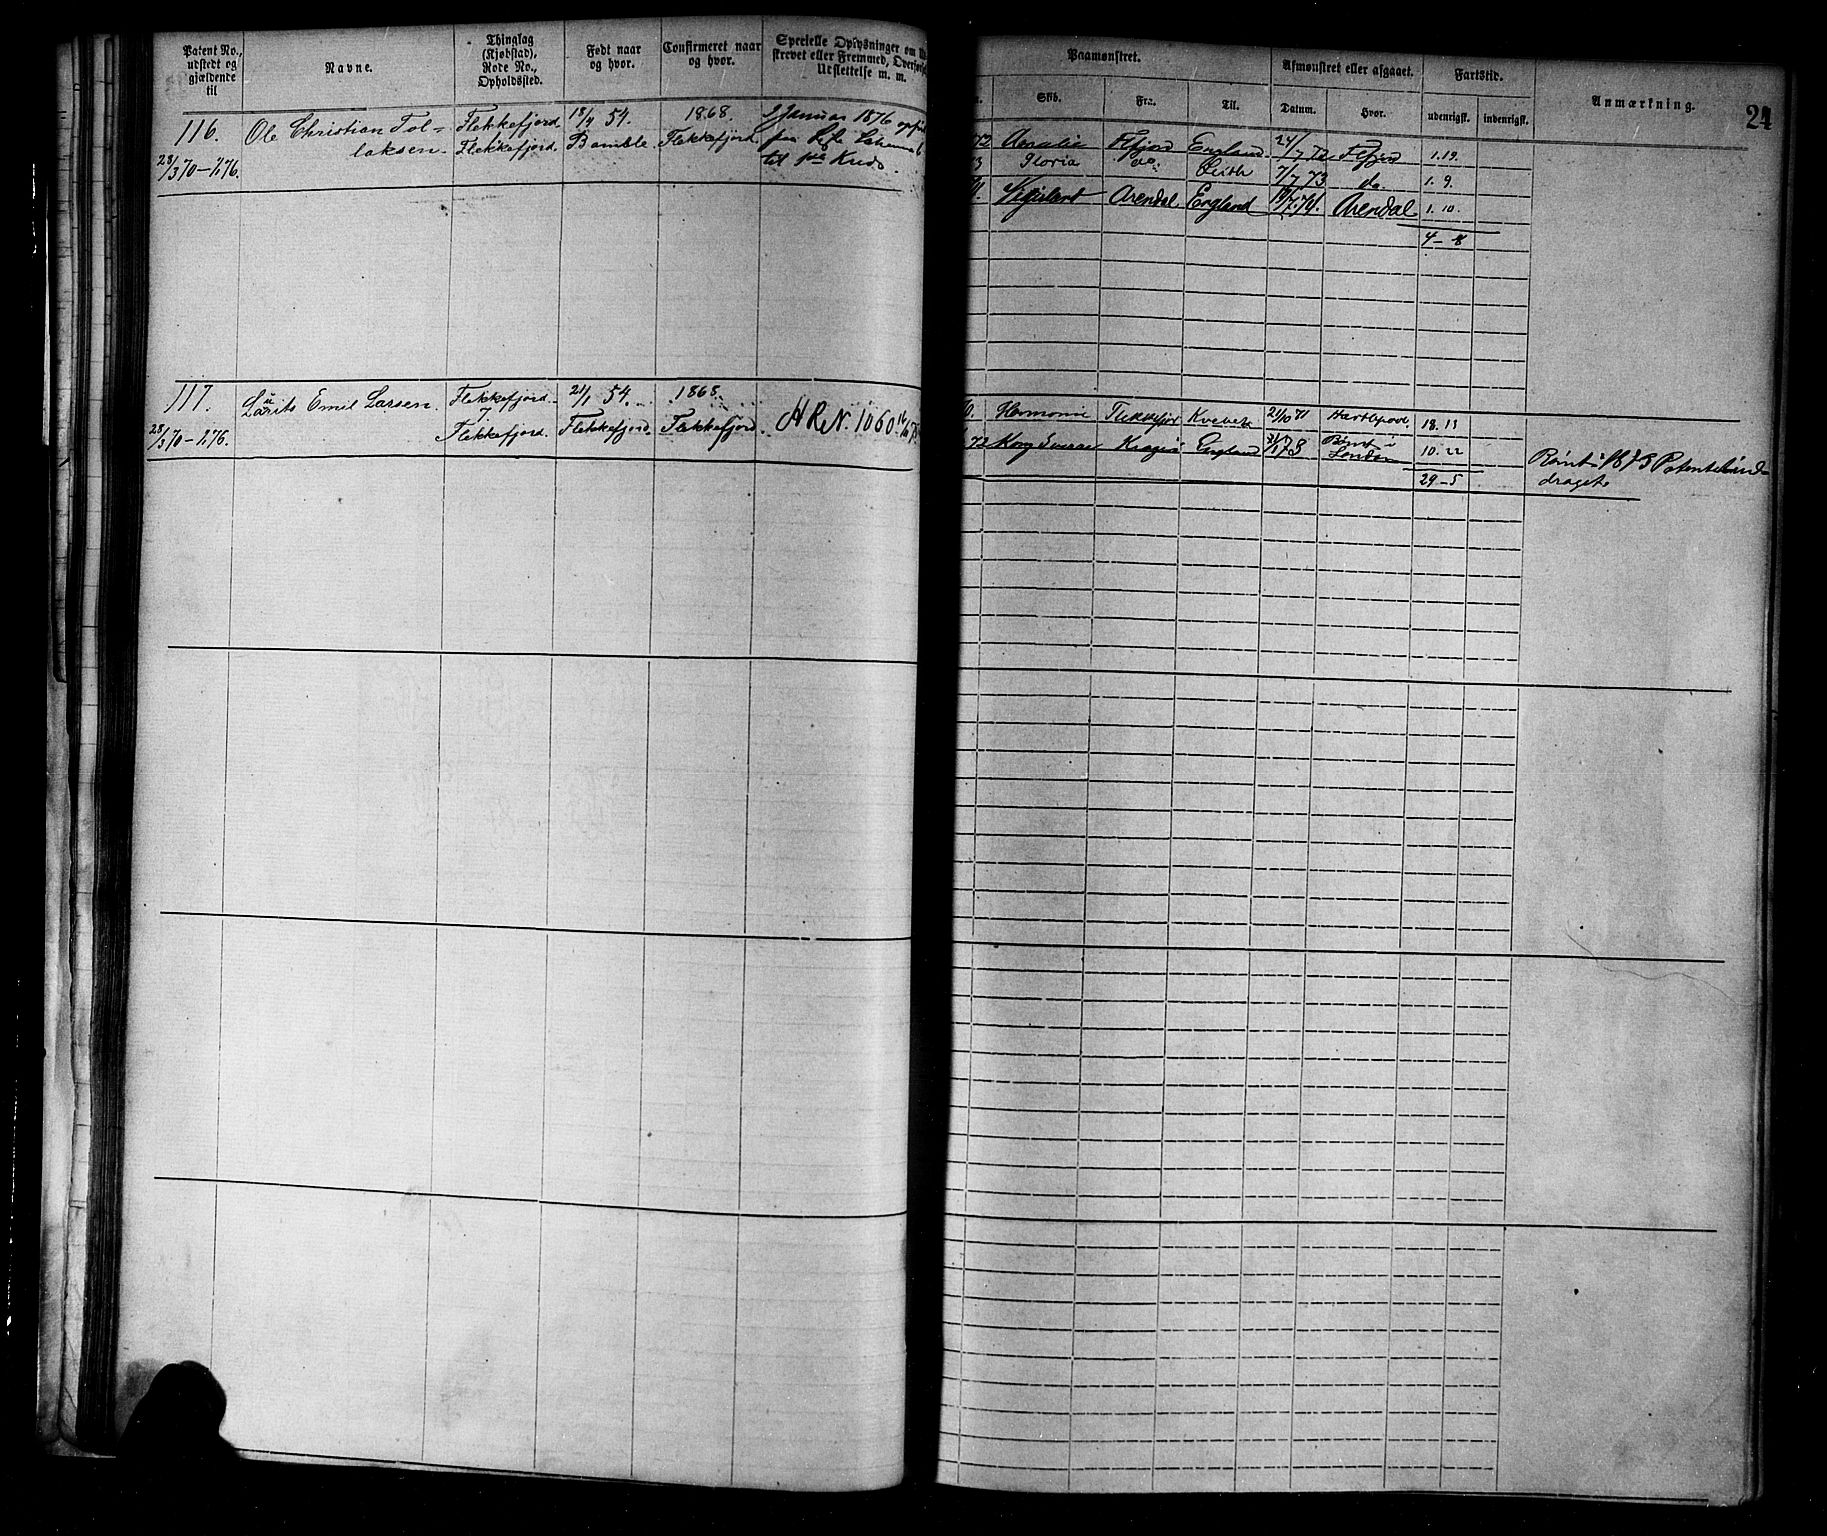 Patent No.,
udstedt og
gjældende
til
Navne.
Thinglag
(Kjøbstad),
Rode No.,
Opholdssted.
Født naar
og hvor.
Confirmeret naar
og hvor.
Specielle Oplysninger om
skrevet eller Fremmed,
Udslettelse m. m.
Paamønstret.
Skib.
Fra.
Til.
Afmønstret eller afgaaet.
Datum.
Hvor.
Fartstid.
udenrigsk.
indenrigsk.
Anmærkning.
24
116.
28/3 70 – 1/1 76.
Ole Christian Tol=
laksen.
Flekkefjord
Flekkefjord.
18/4 54.
Bamble
1868.
Flekkefjord
2 Januar 1876
fra
til
72 Amalia Ffjord England 24/7 72 Ffjord 1.19.
3 Gloria do. Leith 7/7 73 do 1.9.
Arendal England Arendal 1.10.
4–8
117.
28/3 70 – 1/1 76.
Laurits Emil Larsen.
Flekkefjord
7
Flekkefjord.
21/1 54.
Flekkefjord.
1868.
Flekkefjord.
HRN. 1060
Harmonie Flekkefjor Kvebek 21/10 71 Hartlepool 18.13
72 Kong Sverre Kragerø England Rømt i
London 10.22
29–5
Rømt i 1873 Patentet ind=
draget.